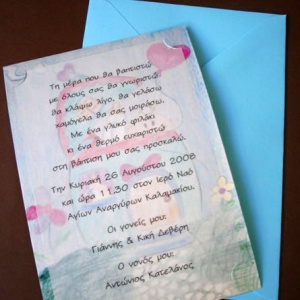 Τη μέρα που θα βαπτιστώ
με όλους σας θα γνωριστώ
θα κλάψω λίγο, θα γελάσω
χαμόγελα θα σας μοιράσω.
Με ένα γλυκό φιλάκι
κι ένα θερμό ευχαριστώ
στη βάπτιση μου σας προσκαλώ.
Την Κυριακή 26 Αυγούστου 2008
και ώρα 11:30 στον Ιερό Ναό
Αγίων Αναργύρων Καλαμακίου.
Οι γονείς μου:
Γιάννης & Κική Δεβέρη
Ο νονός μου:
Αντώνιος Κατελάνος